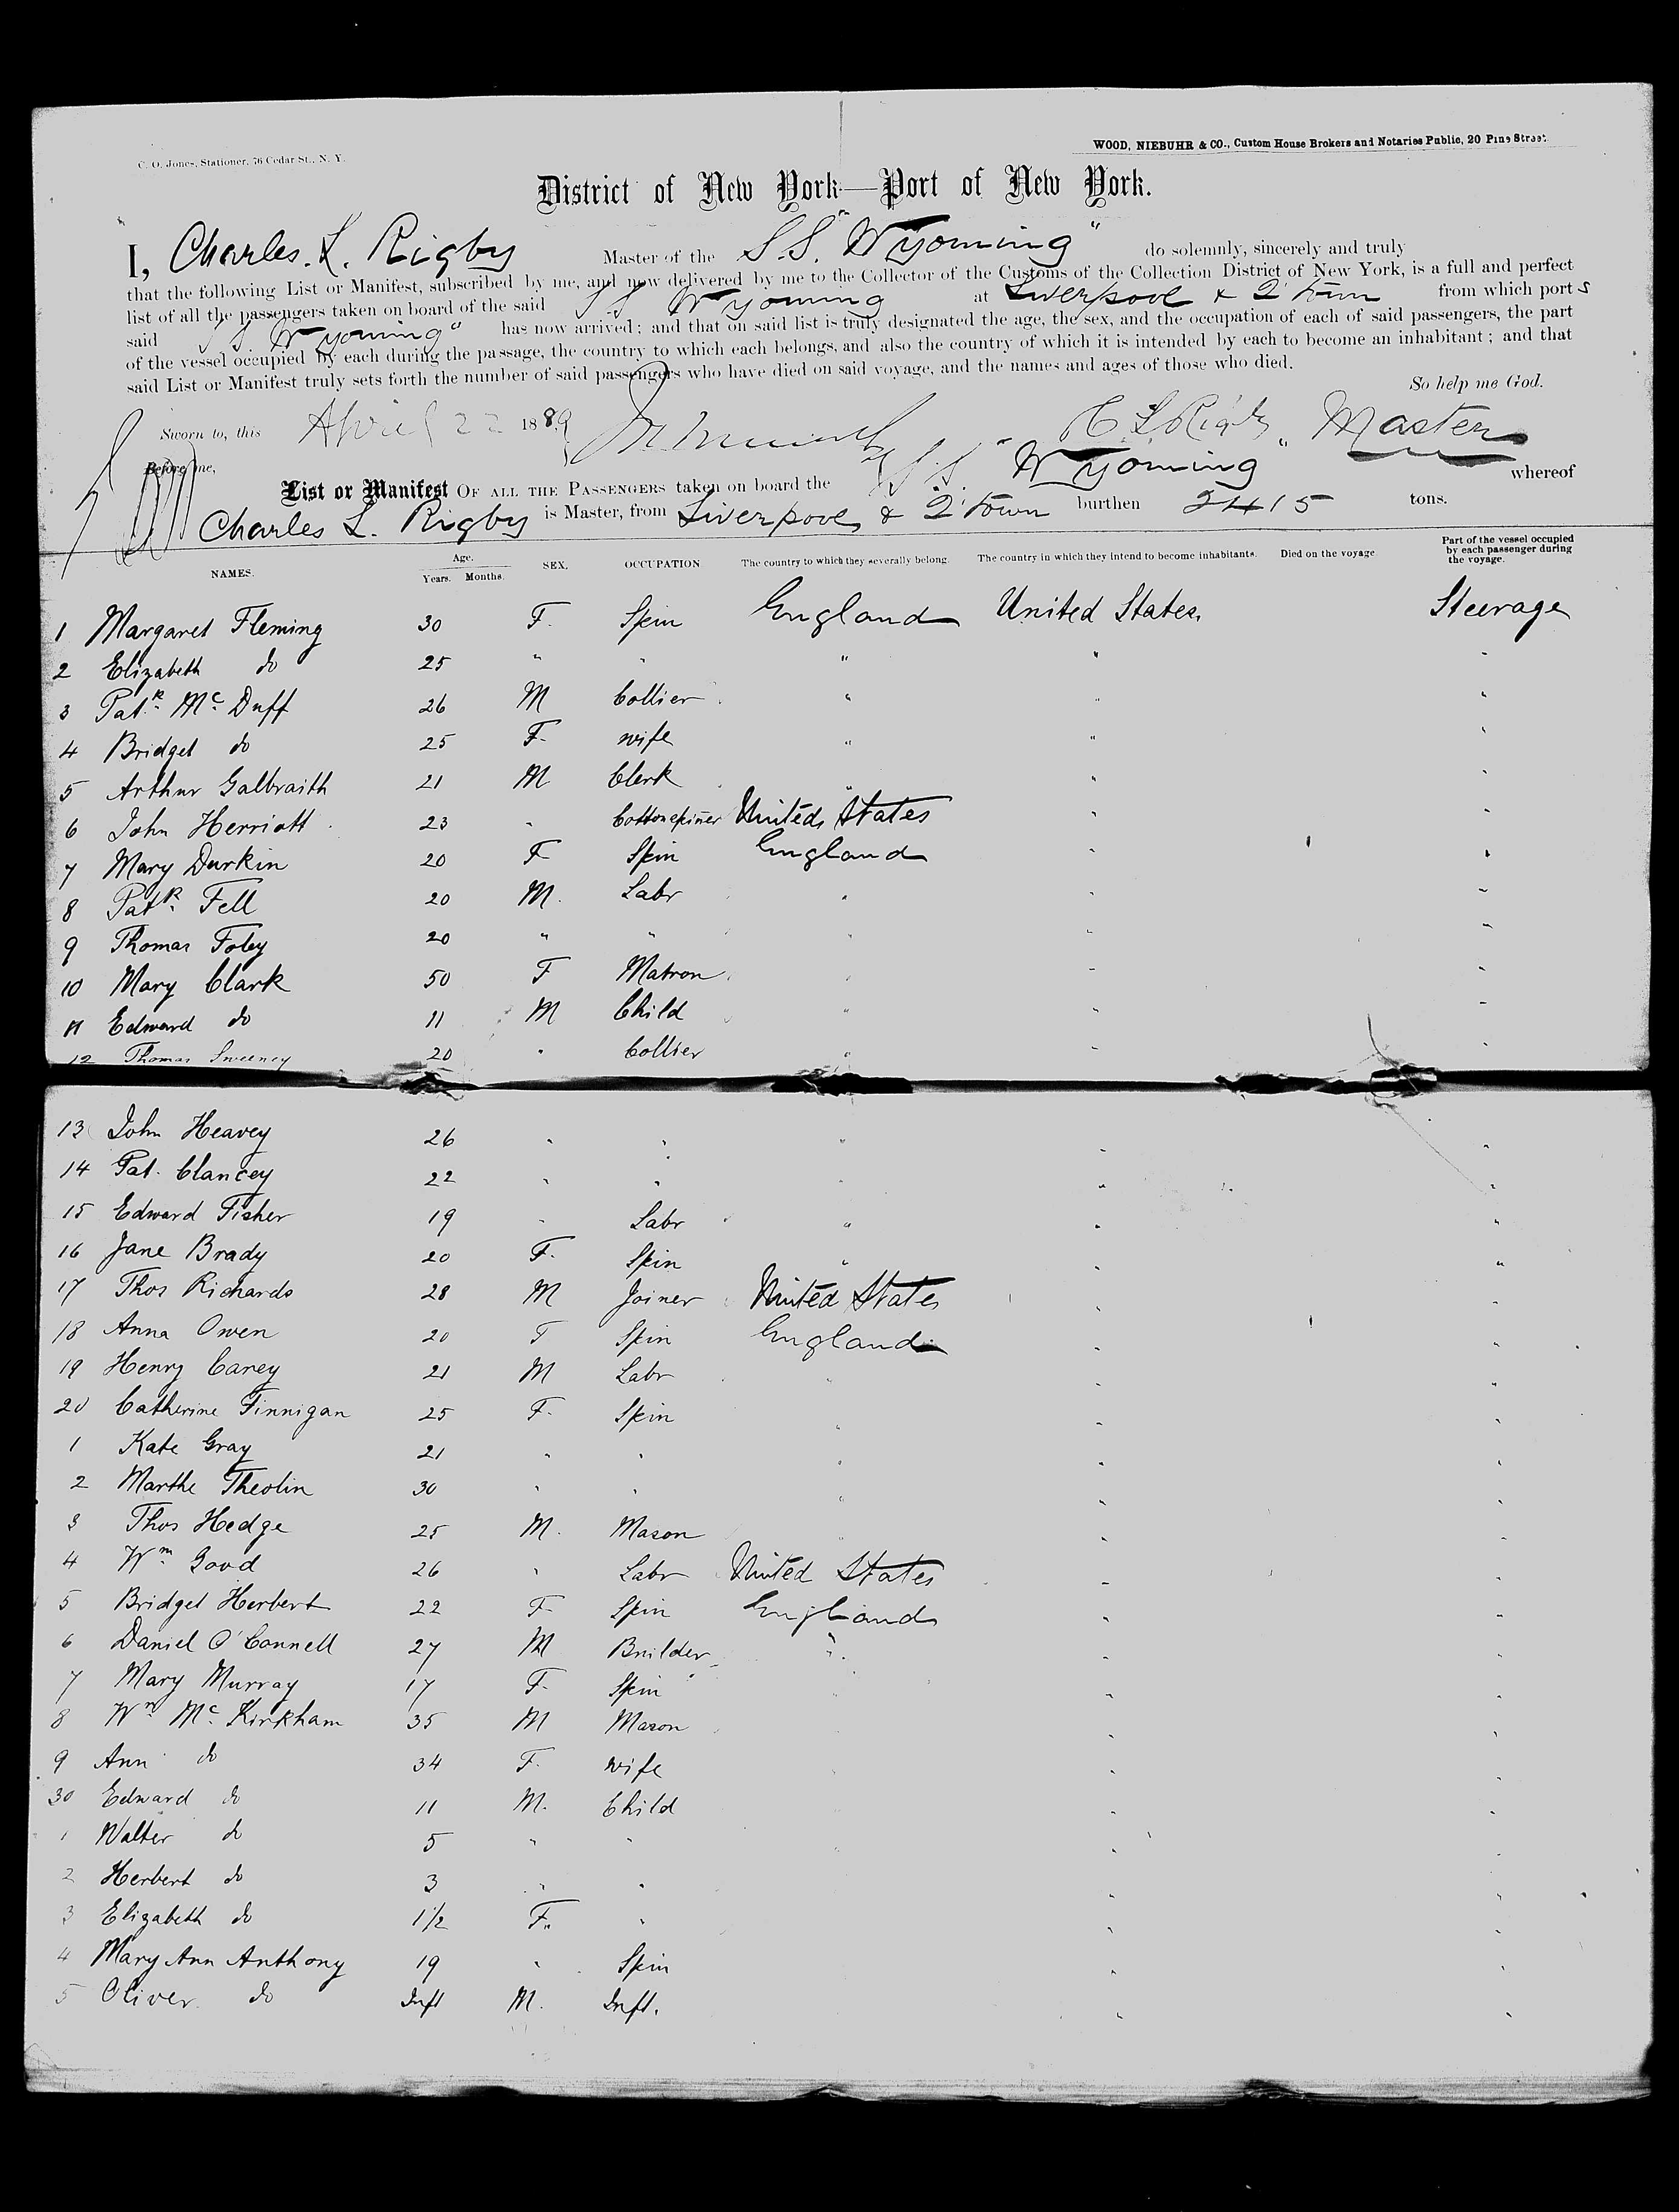 C. O. Jones, Stationer, 76 Cedar St., N. Y.
WOOD, NIEBUHR & CO., Custom House Brokers and Notaries Public, 20 Pine Street.
District of New York—Port of New York.
I, Charles. L. Rigby Master of the S.S. "Wyoming" do solemnly, sincerely and truly
that the following List or Manifest, subscribed by me, and now delivered by me to the Collector of the Customs of the Collection District of New York, is a full and perfect
list of all the passengers taken on board of the said S S Wyoming at Liverpool & Q'town from which ports
said S S. Wyoming" has now arrived; and that on said list is truly designated the age, the sex, and the occupation of each of said passengers, the part
of the vessel occupied by each during the passage, the country to which each belongs, and also the country of which it is intended by each to become an inhabitant; and that
said List or Manifest truly sets forth the number of said passengers who have died on said voyage, and the names and ages of those who died.
So help me God.
Sworn to, this April 22 1889 C L Rigby Master
Before me,
List or Manifest OF ALL THE PASSENGERS taken on board the S.S. "Wyoming" whereof
Charles L. Rigby is Master, from Liverpool & Q'town burthen 2415 tons.
NAMES. Age. Years. Months. SEX. OCCUPATION The country to which they severally belong. The country in which they intend to become inhabitants. Died on the voyage. Part of the vessel occupied by each passenger during the voyage.
1 Margaret Fleming 30 F. Spin England United States. Steerage
2 Elizabeth do 25 " " " " "
3 Patk. Mc. Duff 26 M Collier " " "
4 Bridget do 25 F. wife " " "
5 Arthur Galbraith 21 M Clerk " " "
6 John Herriott 23 " Cottonspiner United States " "
7 Mary Durkin 20 F Spin England " "
8 Patk. Fell 20 M. Labr " " "
9 Thomas Foley 20 " " " " "
10 Mary Clark 50 F Matron " " "
11 Edward do 11 M Child " " "
12 Thomas Sweeney 20 " Collier " " "
13 John Heavey 26 " " " " "
14 Pat. Clancey 22 " " " " "
15 Edward Fisher 19 " Labr " " "
16 Jane Brady 20 F. Spin " " "
17 Thos Richards 28 M Joiner United States " "
18 Anna Owen 20 F Spin England " "
19 Henry Carey 21 M Labr " " "
20 Catherine Finnigan 25 F. Spin " " "
1 Kate Gray 21 " " " " "
2 Marthe Theolin 30 " " " " "
3 Thos Hedge 25 M. Mason " " "
4 Wm. Good 26 " Labr United States " "
5 Bridget Herbert 22 F Spin England " "
6 Daniel O'Connell 27 M Builder " " "
7 Mary Murray 17 F. Spin " "
8 Wm. Mc. Kirkham 35 M Mason " "
9 Ann do 34 F. wife " "
30 Edward do 11 M. Child " "
1 Walter do 5 " " " "
2 Herbert do 3 " " " "
3 Elizabeth do 1 1/2 F. " " "
4 Mary Ann Anthony 19 " Spin " "
5 Oliver do Inft M. Inft. " "